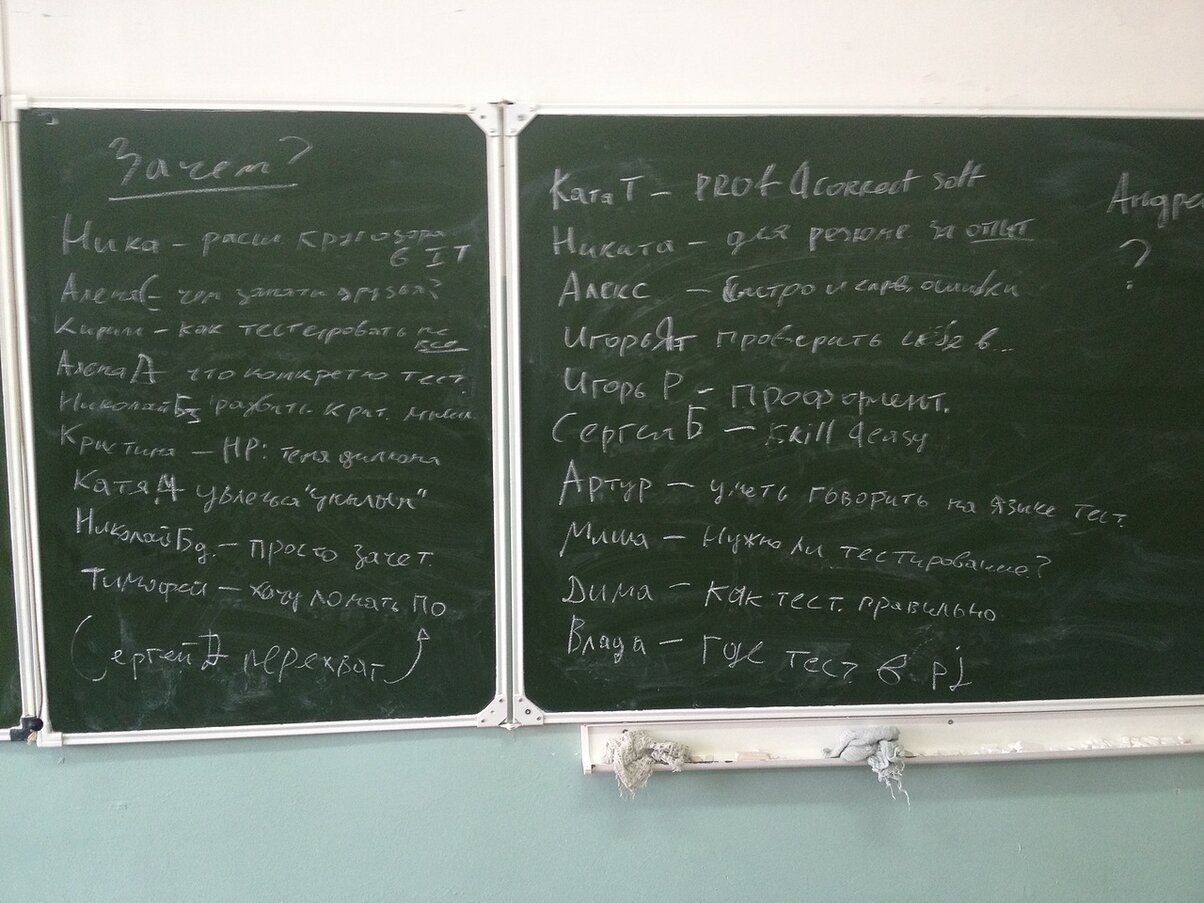 Зачем?
Ника – расш кругозора
в IT
Алена С – чем заняты друзья?
Кирилл – как тестировать не
все
Алена Д что конкретно тест.
Николай Бз развить крит. мышл.
Кристина – HR: тема диплома
Катя Д увлечься "унылым"
Николай Бд. – просто зачет.
Тимофей – хочу ломать ПО
Сергей Д перехват
Катя Т – PROF 4 correct soft
Никита – для резюме за опыт
Алекс – быстро и ошибки
Игорь Проверить в...
Игорь Р – Профориент.
Сергей Б – skill 4 easy
Артур – уметь говорить на языке тест.
Миша – Нужно ли тестирование?
Дима – как тест. правильно
Влада – где тест. в pj
Андре
?